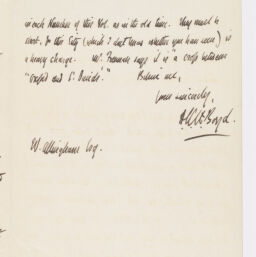 of this Vol. as in the old time. They must be
short. In this City (which I don't know whether you have seen) is
a heavy charge. Mr. Freeman says it is "a cross between
"Oxford and St. Davids." Believe me,
Yours sincerely,
A.K.H. Boyd.
W. Allingham Esq.